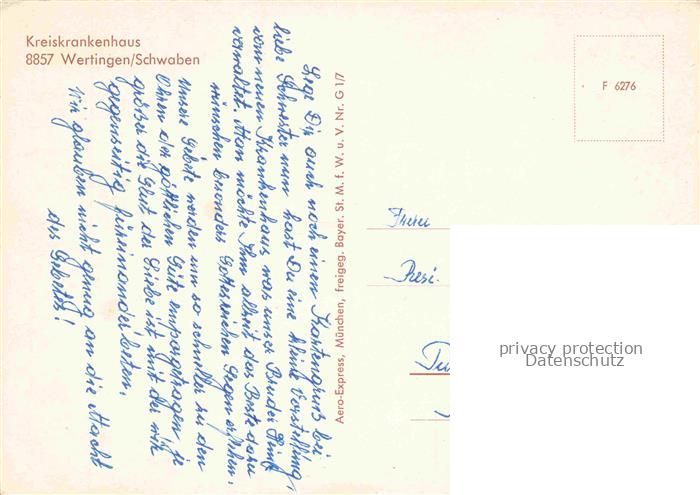 Kreiskrankenhaus
8857 Wertingen/Schwaben
F 6276
Lege Dir auch noch einen Kartengruß bei
liebe Schwester nun hast Du eine kleine Vorstellung,
vom neuen Krankenhaus was unser Bruder
verwaltet. Man möchte Ihm allzeit das Beste dazu
wünschen besonders Gottesreichen Segen erflehen.
Unsere Gebete werden um so schneller zu den
Ohren der göttlichen Güte emporgetragen je
größer die Glut der Liebe ist mit der wir
gegenseitig füreinander beten.
Wir glauben nicht genug an die Macht
des Gebetes!
Aero-Express, München, freigeg. Bayer. St. M. f. W. u. V. Nr. G 1/7
privacy protection
Datenschutz